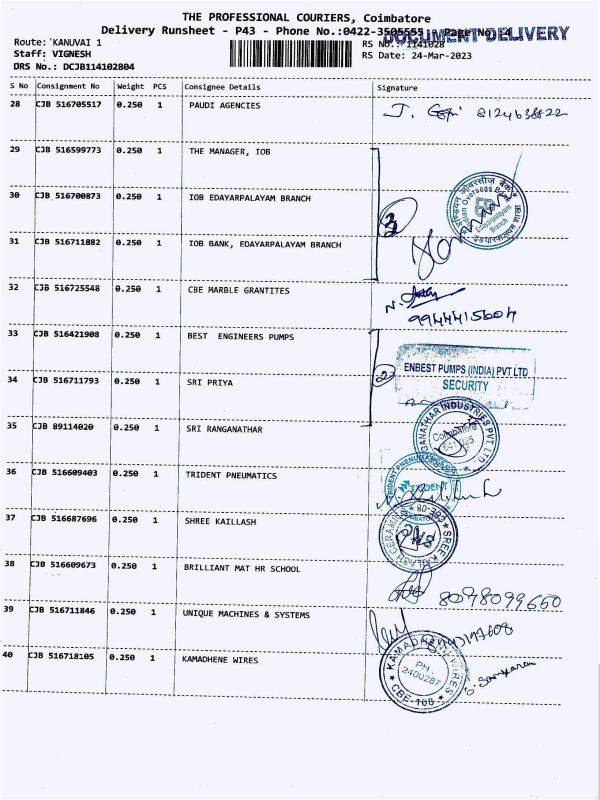 THE PROFESSIONAL COURIERS, Coimbatore
Delivery Runsheet - P43 - Phone No.:0422-3505555 - Page No. 4
DOCUMENT DELIVERY
Route: KANUVAI 1
RS No.: 1141028
Staff: VIGNESH
RS Date: 24-Mar-2023
DRS No.: DCJB114102804
S No Consignment No Weight PCS Consignee Details Signature
28 CJB 516705517 0.250 1 PAUDI AGENCIES J. 8124638822
29 CJB 516599773 0.250 1 THE MANAGER, IOB
30 CJB 516700873 0.250 1 IOB EDAYARPALAYAM BRANCH
Indian Overseas Bank
Edayarpalayam
Branch
31 CJB 516711882 0.250 1 IOB BANK, EDAYARPALAYAM BRANCH
32 CJB 516725548 0.250 1 CBE MARBLE GRANTITES
9944415604
33 CJB 516421908 0.250 1 BEST ENGINEERS PUMPS
ENBEST PUMPS (INDIA) PVT LTD
SECURITY
34 CJB 516711793 0.250 1 SRI PRIYA
35 CJB 89114020 0.250 1 SRI RANGANATHAR
INDUSTRIES PVT. LTD.
Coimbatore
36 CJB 516609403 0.250 1 TRIDENT PNEUMATICS
TRIDENT
37 CJB 516687696 0.250 1 SHREE KAILLASH
38 CJB 516609673 0.250 1 BRILLIANT MAT HR SCHOOL
8098099650
39 CJB 516711846 0.250 1 UNIQUE MACHINES & SYSTEMS
40 CJB 516718105 0.250 1 KAMADHENE WIRES
KAMADHENU WIRES
PH
2400287
CBE-108